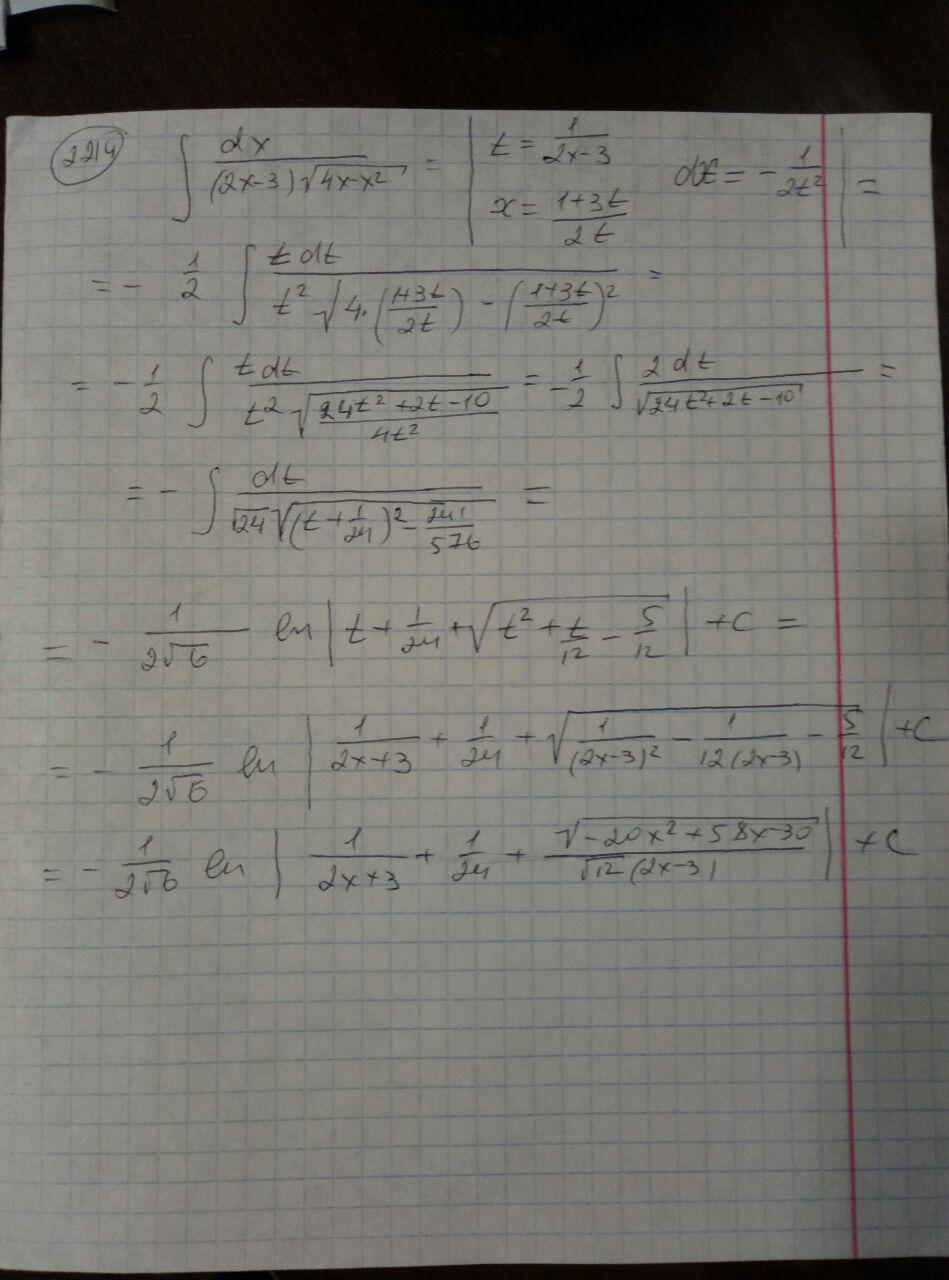 2214 ∫ dx / ((2x-3)√(4x-x²)) = | t = 1/(2x-3) x = (1+3t)/(2t) dx = -1/(2t²) | =
= - 1/2 ∫ t dt / (t² √(4·((1+3t)/(2t)) - ((1+3t)/(2t))²)) =
= - 1/2 ∫ t dt / (t² √((24t²+2t-10)/(4t²))) = - 1/2 ∫ 2 dt / √(24t²+2t-10) =
= - ∫ dt / (√24 √((t+1/24)² - 241/576)) =
= - 1/(2√6) ln | t + 1/24 + √(t² + t/12 - 5/12) | + C =
= - 1/(2√6) ln | 1/(2x+3) + 1/24 + √(1/(2x-3)² - 1/(12(2x-3)) - 5/12) | + C
= - 1/(2√6) ln | 1/(2x+3) + 1/24 + √(-20x²+58x-30) / (√12 (2x-3) | + C